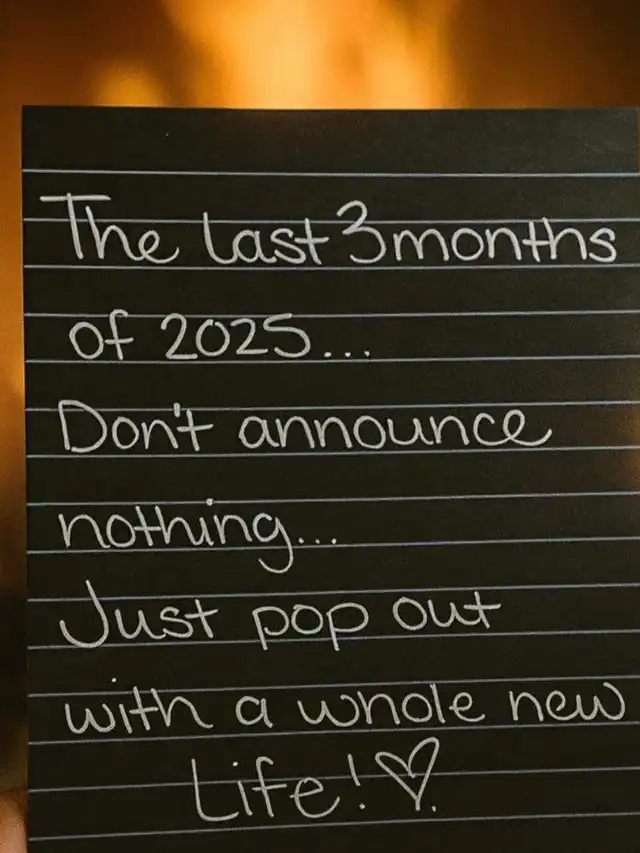 The last 3 months
of 2025...
Don't announce
nothing...
Just pop out
with a whole new
Life! ♡